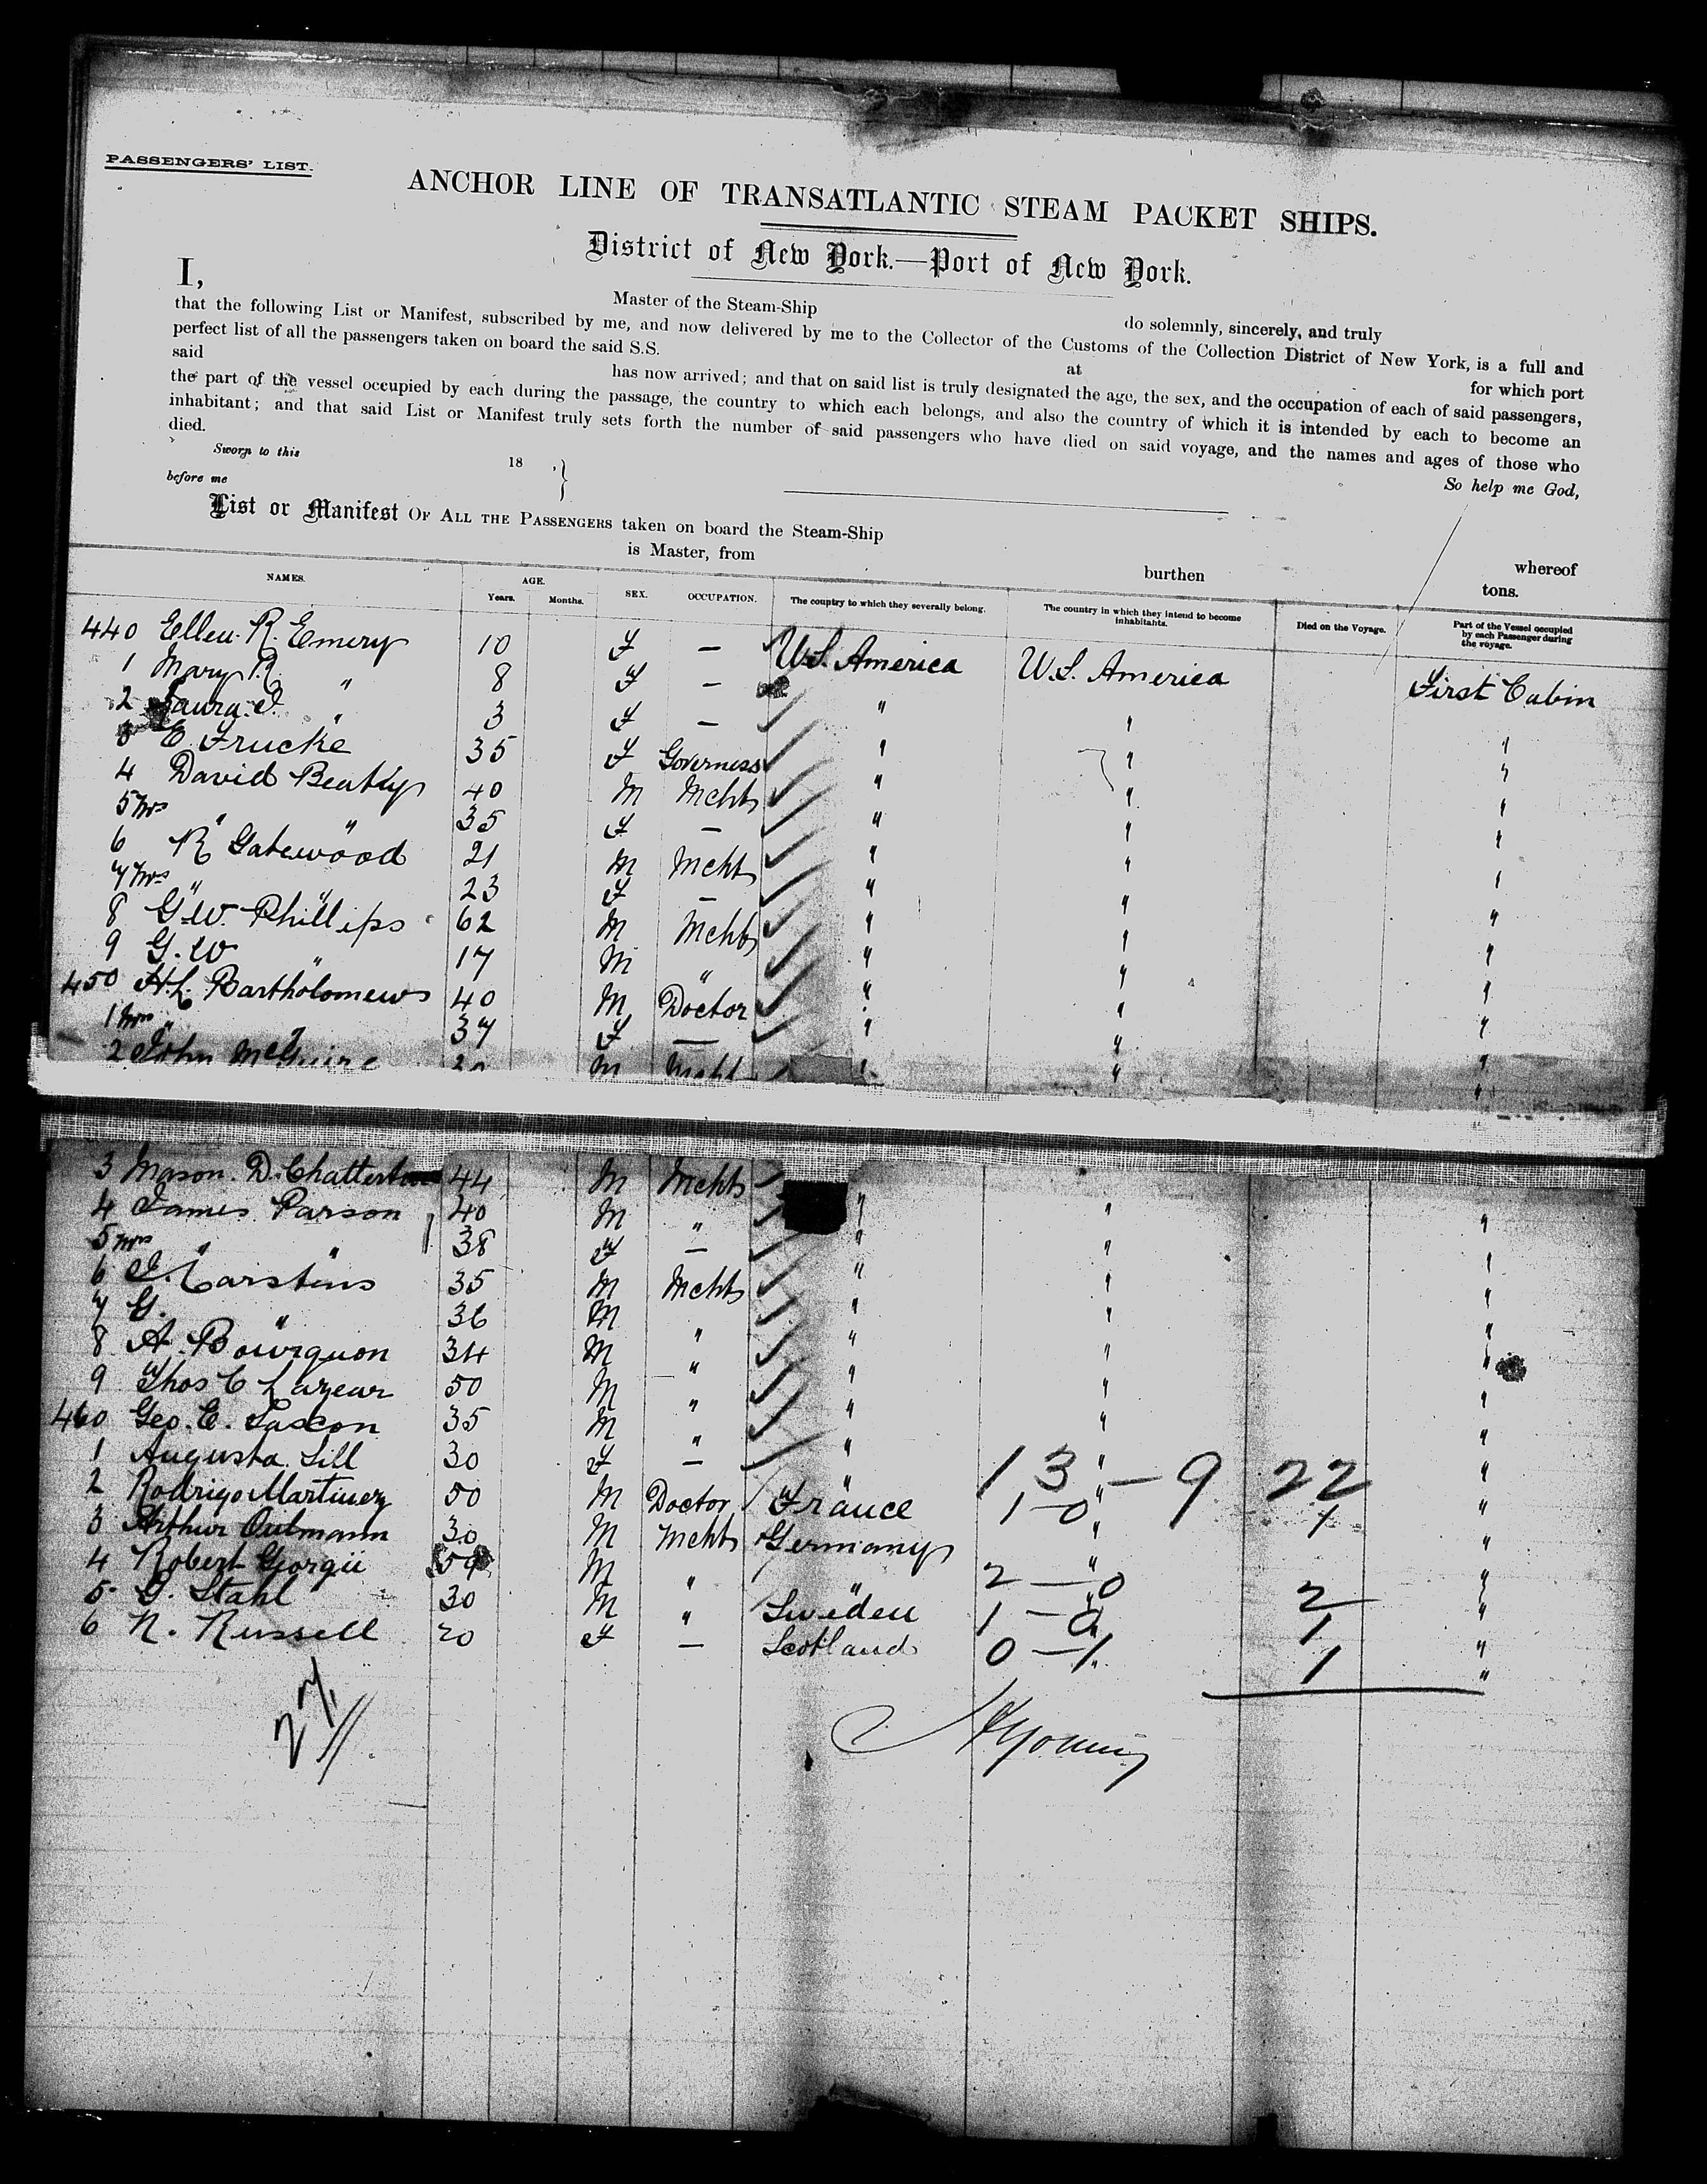 PASSENGERS' LIST.
ANCHOR LINE OF TRANSATLANTIC STEAM PACKET SHIPS.
District of New York.—Port of New York.
I,
Master of the Steam-Ship do solemnly, sincerely, and truly
that the following List or Manifest, subscribed by me, and now delivered by me to the Collector of the Customs of the Collection District of New York, is a full and
perfect list of all the passengers taken on board the said S.S. at for which port
said has now arrived; and that on said list is truly designated the age, the sex, and the occupation of each of said passengers,
the part of the vessel occupied by each during the passage, the country to which each belongs, and also the country of which it is intended by each to become an
inhabitant; and that said List or Manifest truly sets forth the number of said passengers who have died on said voyage, and the names and ages of those who
died.
So help me God,
Sworn to this 18 ,}
before me
List or Manifest OF ALL THE PASSENGERS taken on board the Steam-Ship whereof
is Master, from burthen tons.
NAMES. AGE. Years. Months. SEX. OCCUPATION. The country to which they severally belong. The country in which they intend to become inhabitants. Died on the Voyage. Part of the Vessel occupied by each Passenger during the voyage.
440 Ellen R. Emery 10 F — U.S. America U.S. America First Cabin
1 Mary R. " 8 F — " " "
2 Laura I. " 3 F — " " "
3 E Frucke 35 F Governess " " "
4 David Beatty 40 M Mcht " " "
5 Mrs " " 35 F — " " "
6 R Gatewood 21 M Mcht " " "
7 Mrs " " 23 F — " " "
8 G.W. Phillips 62 M Mcht " " "
9 G.W " 17 M " " " "
450 H.L. Bartholomew 40 M Doctor " " "
1 Mrs " " 37 F — " " "
2 John McGuire M Mcht " " "
3 Mason. D. Chatterton 44 M Mcht " " "
4 James Parson 40 M " " " "
5 Mrs " " 38 F — " " "
6 J. Carstens 35 M Mcht " " "
7 G. " 36 M " " " "
8 A. Bourquon 34 M " " " "
9 Thos C Lazear 50 M " " " "
460 Geo. E. Saxon 35 M " " " "
1 Augusta Lill 30 F — " " 13 — 9 22 "
2 Rodrigo Martinez 50 M Doctor France " 1 — 0 1 "
3 Arthur Oulmann 30 M Mcht Germany " "
4 Robert Georgii M " " " 2 — 0 2 "
5 G. Stahl 30 M " Sweden " 1 — 0 1 "
6 N. Russell 20 F — Scotland " 0 — 1 1 "
27
Young